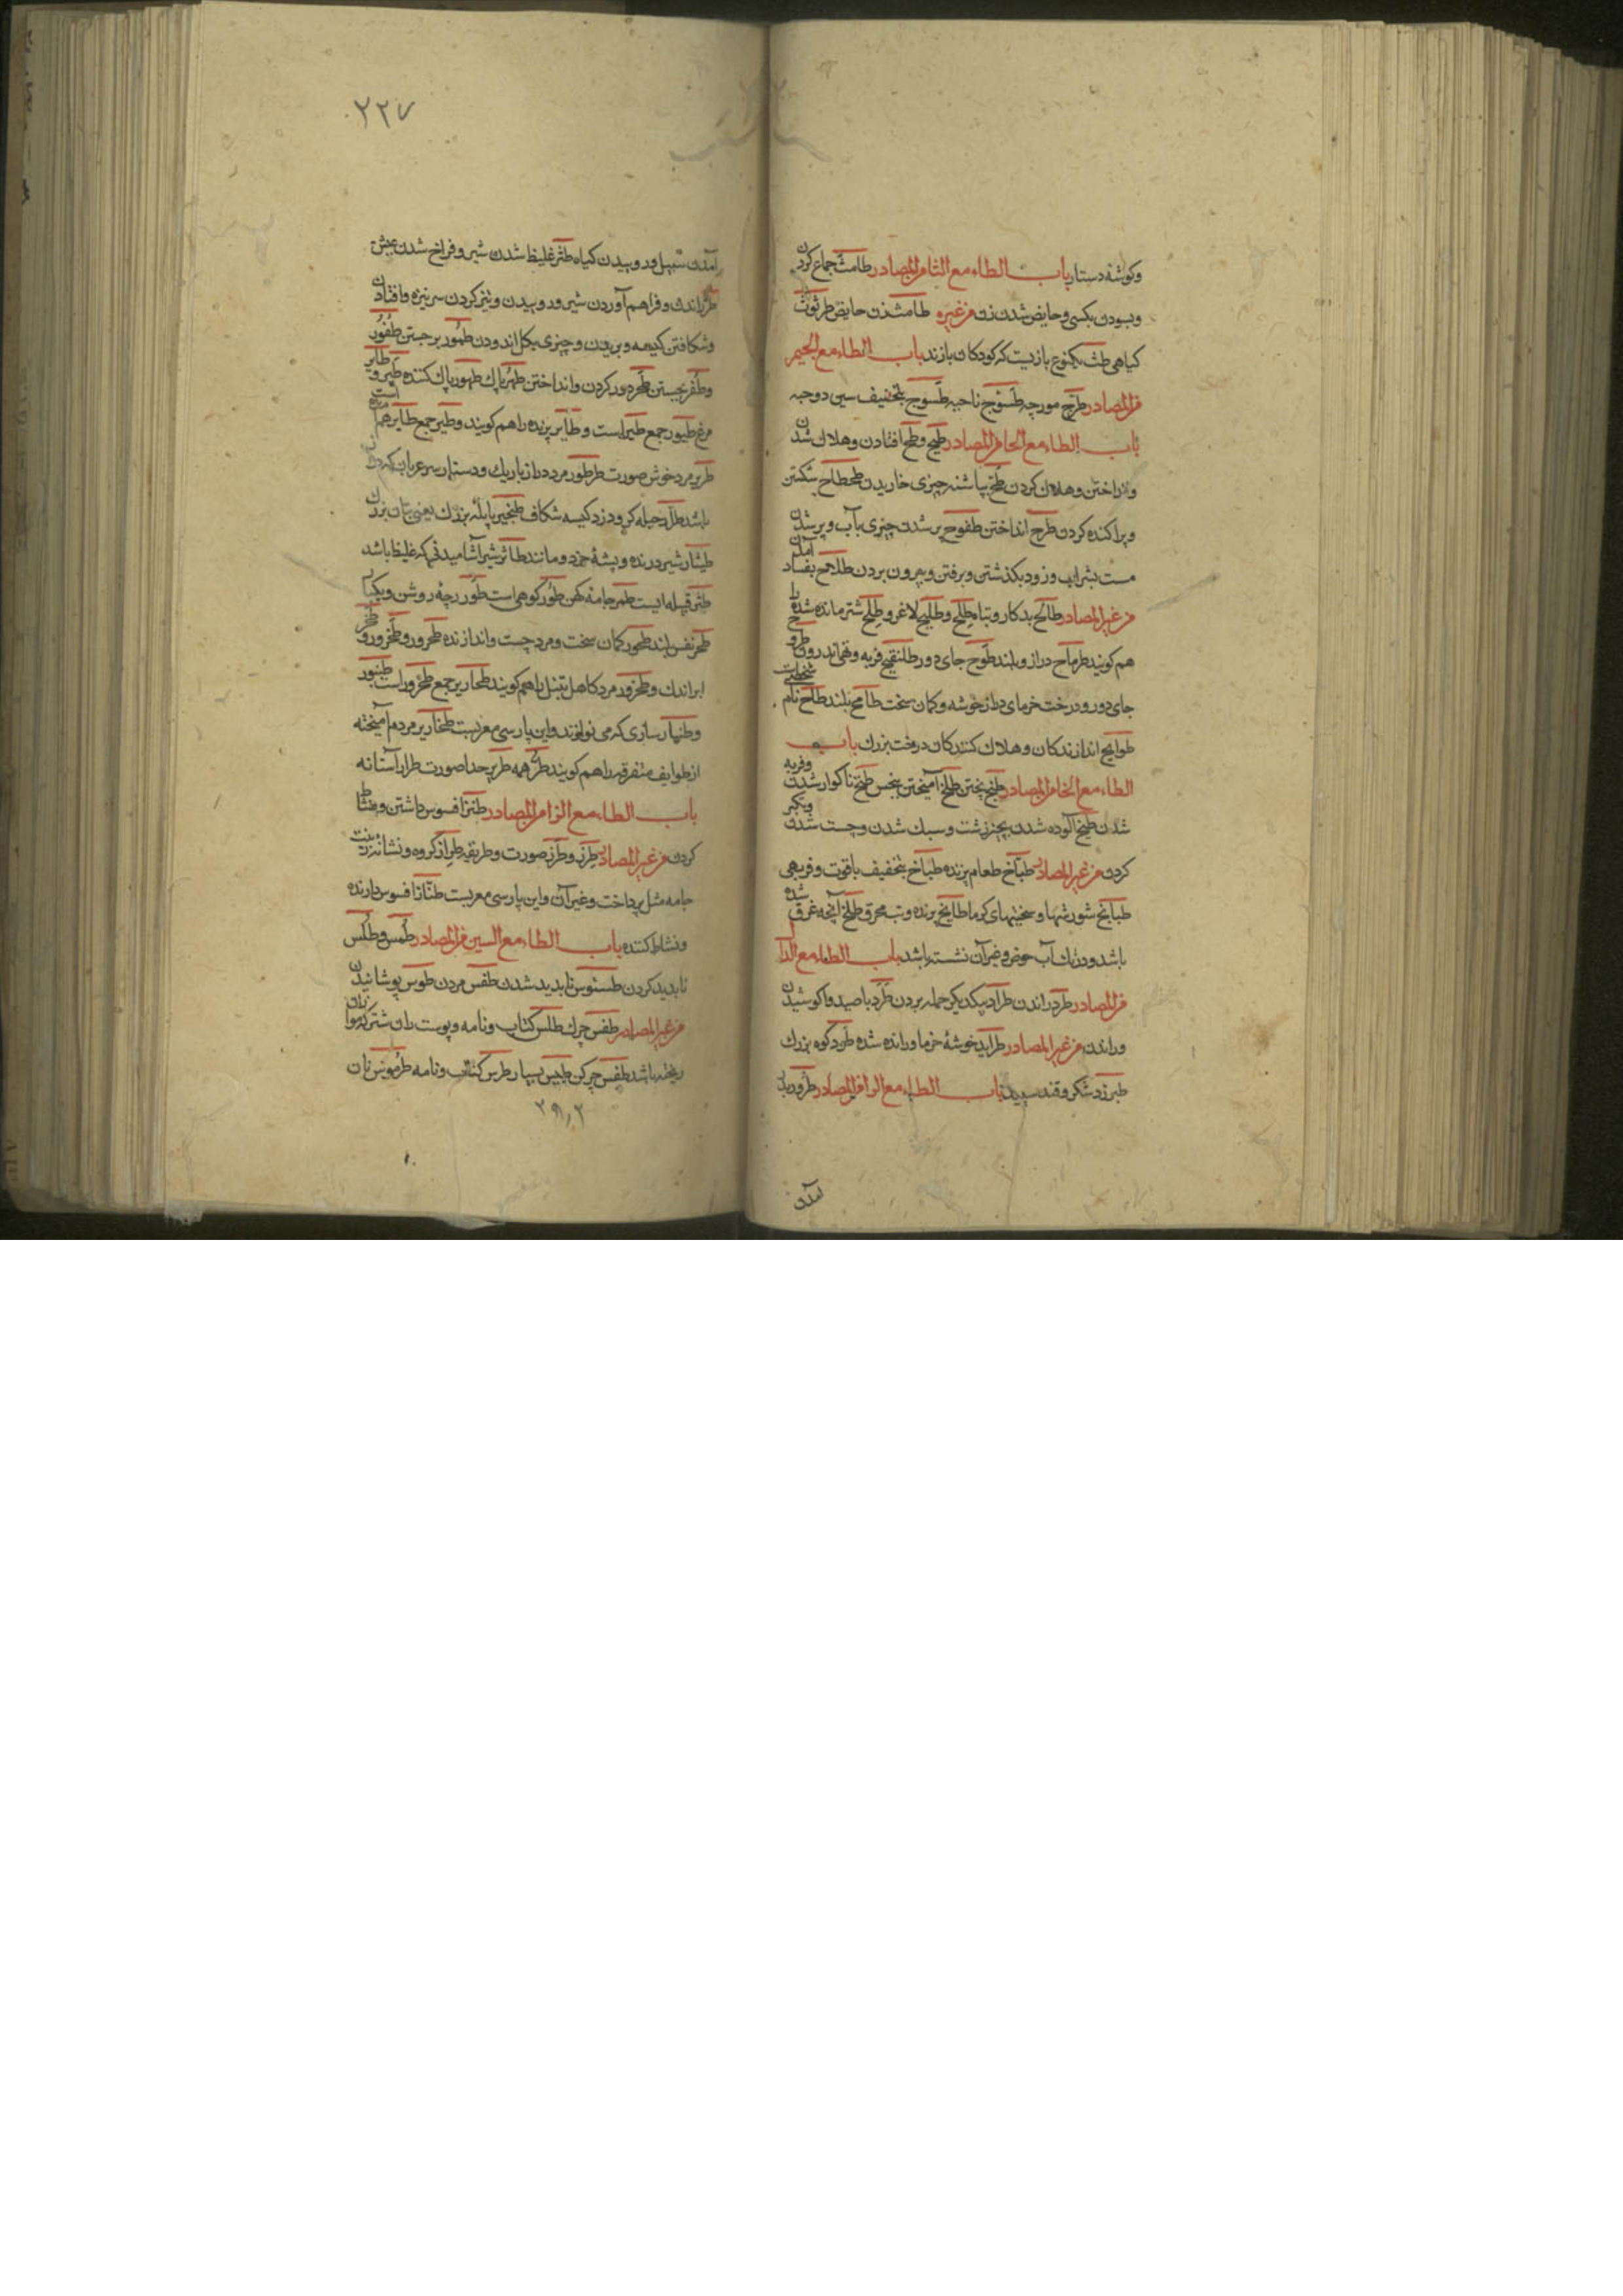 وکوشهٔ دستار باب الطاء مع الثا من المصادر طامث جماع کردن
وبسودن بکسی وحایض شدن زن من غیره طامث زن حایض طرثوث
کیاهی طث یکنوع بازیست که کودکان بازند باب الطاء مع الجیم
من المصادر طرج مورچه طسوج ناحیه طسوج بتخفیف سین دوحبه
باب الطاء مع الحا من المصادر طیح وطح افتادن وهلاک شدن
وانداختن وهلاک کردن طح بپاشنه چیزی خاریدن طحطاح شکستن
وپراکنده کردن طرح انداختن طفوح پر شدن چیزی بآب وپر شدن
مست بشراب وزود بکذشتن وبرفتن وبیرون بردن طلاح بفساد آمدن
من غیر المصادر طالح بدکار وتباه طلح وطلیح لاغر وطلح شتر مانده شده را
هم کویند طرماح دراز وبلند طوح جای دور
جای دور ودرخت خرمای دراز خوشه وکمان سخت طامح بلند طلاح نام
طوایح اندازندکان وهلاک کنندکان درخت بزرک باب
الطاء مع الخا من المصادر طبخ پختن طلخ آمیختن بنجس طنخ ناکوار شدن وفربه
شدن طیخ آلوده شدن بچیز زشت وسبک شدن وچست شدن وتکبر
کردن من غیر المصادر طباخ طعام پزنده طباخ بتخفیف باقوت وفربهی
طبایخ شورشها وسختیهای کرما طابخ پزنده وتب محرق طلخ آنچه غرق شده
باشد ودر تک آب حوض وغیر آن نشسته باشد باب الطاء مع الدال
من المصادر طرد راندن طراد بیکدیکر حمله بردن طرد با صید واکوشیدن
وراندن من غیر المصادر طراید خوشهٔ خرما ورانده شده طود کوه بزرک
طبرزد شکر وقند سپید باب الطاء مع الرا من المصادر طرور
آمدن
۲۲۷
آمدن سبیل ور وییدن کیاه طثر غلیظ شدن شیر وفراخ شدن عیش
طر راندن وفراهم آوردن شیر ور وییدن وتیز کردن سر نیزه وافتادن
وشکافتن کیسه وبریدن وچیزی بکل اندودن طمور بر جستن طفور
وطفر بجستن طحر دور کردن وانداختن طهر پاک طهور پاک کننده طیر وطایر
مرغ طیور جمع طیر است وطایر پرنده را هم کویند وطیر جمع طایر هم است
طریر مرد خوش صورت طرطور مرد دراز باریک ودستار سر عربان که دراز
باشد طرار حیله کر ودزد کیسه شکاف طنجیر پاتلهٔ بزرک یعنی تیان بزرک
طیثار شیر درنده وپشهٔ خرد ومانند طاثر شیر آشامیدنی که غلیظ باشد
طثر قبیله ایست طمر جامهٔ کهن طور کوهی است طور
طحر نفس بلند طحور کمان سخت ومرد چست واندازنده طحرور وطخرور وطخر
ابر اندک وطخرور مرد کاهل تنبل را هم کویند طحاریر جمع طحرور است طنبور
وطنبار سازی که می نوازند واین پارسی معربست طخاریر مردم آمیخته
از طوایف متفرقه را هم کویند طرا همه طریر جدا صورت طرار آستانه
باب الطاء مع الزا من المصادر طنز افسوس داشتن ونشاط
کردن من غیر المصادر طرز وطرز صورت وطریقه طراز کروه ونشانه زینت
جامه مثل پرداخت وغیر آن واین پارسی معربست طناز افسوس دارنده
ونشاط کننده باب الطاء مع السین من المصادر طمس وطلس
ناپدید کردن طسوس ناپدید شدن طفس مردن طوس پوشانیدن
من غیر المصادر طفس چرک طلس کتاب ونامه وپوست ران شتر که موازان
ریخته باشد طفس چرکن طبیس بسیار طرس کتاب ونامه طرموس نان
۲۹۸۲